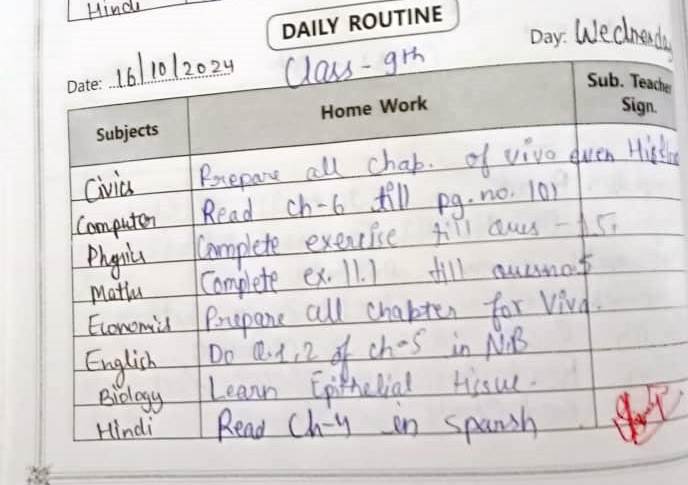 Hindi
DAILY ROUTINE
Day: Wednesday
Date: 16/10/2024
Class - 9th
Subjects Home Work Sub. Teacher Sign.
Civics Prepare all chap. of vivo
Computer Read ch-6 till pg. no. 101
Physics Complete exercise till ques - 15.
Maths Complete ex. 11.1 till quesno.5
Economics Prepare all chapter for Viva.
English Do Q.1,2 of ch-5 in N.B
Biology Learn Epithelial tissue.
Hindi Read Ch-4 in sparsh